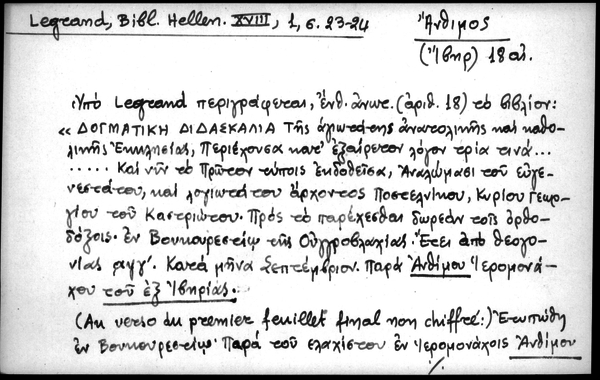 Legrand, Bibl. Hellen. XVIII, 1, σ. 23-24
Ἄνθιμος
(Ἴβηρ) 18 αἰ.
Ὑπὸ Legrand περιγράφεται, ἔνθ. ἀνωτ. (ἀριθ. 18) τὸ βιβλίον:
«ΔΟΓΜΑΤΙΚΗ ΔΙΔΑΣΚΑΛΙΑ Τῆς ἁγιωτάτης ἀνατολικῆς καὶ καθο-
λικῆς Ἐκκλησίας, Περιέχουσα κατ' ἐξαίρετον λόγον τρία τινά...
..... Καὶ νῦν τὸ Πρῶτον τύποις ἐκδοθεῖσα, Ἀναλώμασι τοῦ εὐγε-
νεστάτου, καὶ λογιωτάτου ἄρχοντος Ποστελνίκου, Κυρίου Γεωρ-
γίου τοῦ Καστριώτου. Πρὸς τὸ παρέχεσθαι δωρεὰν τοῖς ὀρθο-
δόξοις. ἐν Βουκουρεστίῳ τῆς Οὑγγροβλαχίας. Ἔτει ἀπὸ θεογο-
νίας αψγ'. Κατὰ μῆνα Σεπτέμβριον. Παρὰ Ἀνθίμου Ἱερομονά-
χου τοῦ ἐξ Ἰβηρίας.
(Au verso du premier feuillet final non chiffré:) Ἐτυπώθη
ἐν Βουκουρεστίῳ. Παρὰ τοῦ ἐλαχίστου ἐν Ἱερομονάχοις Ἀνθίμου
./.